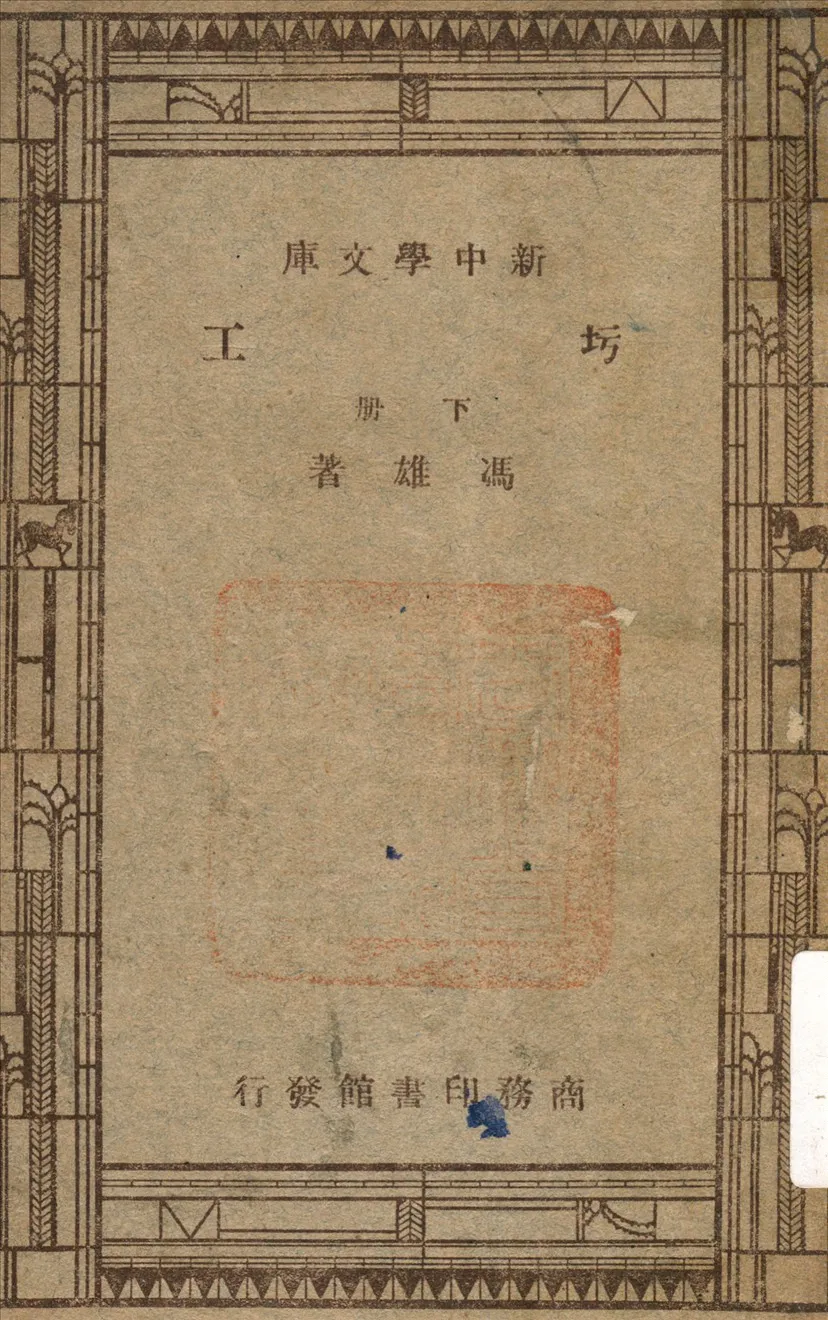 新中學文庫
圬工
下册
馮雄著
商務印書館發行